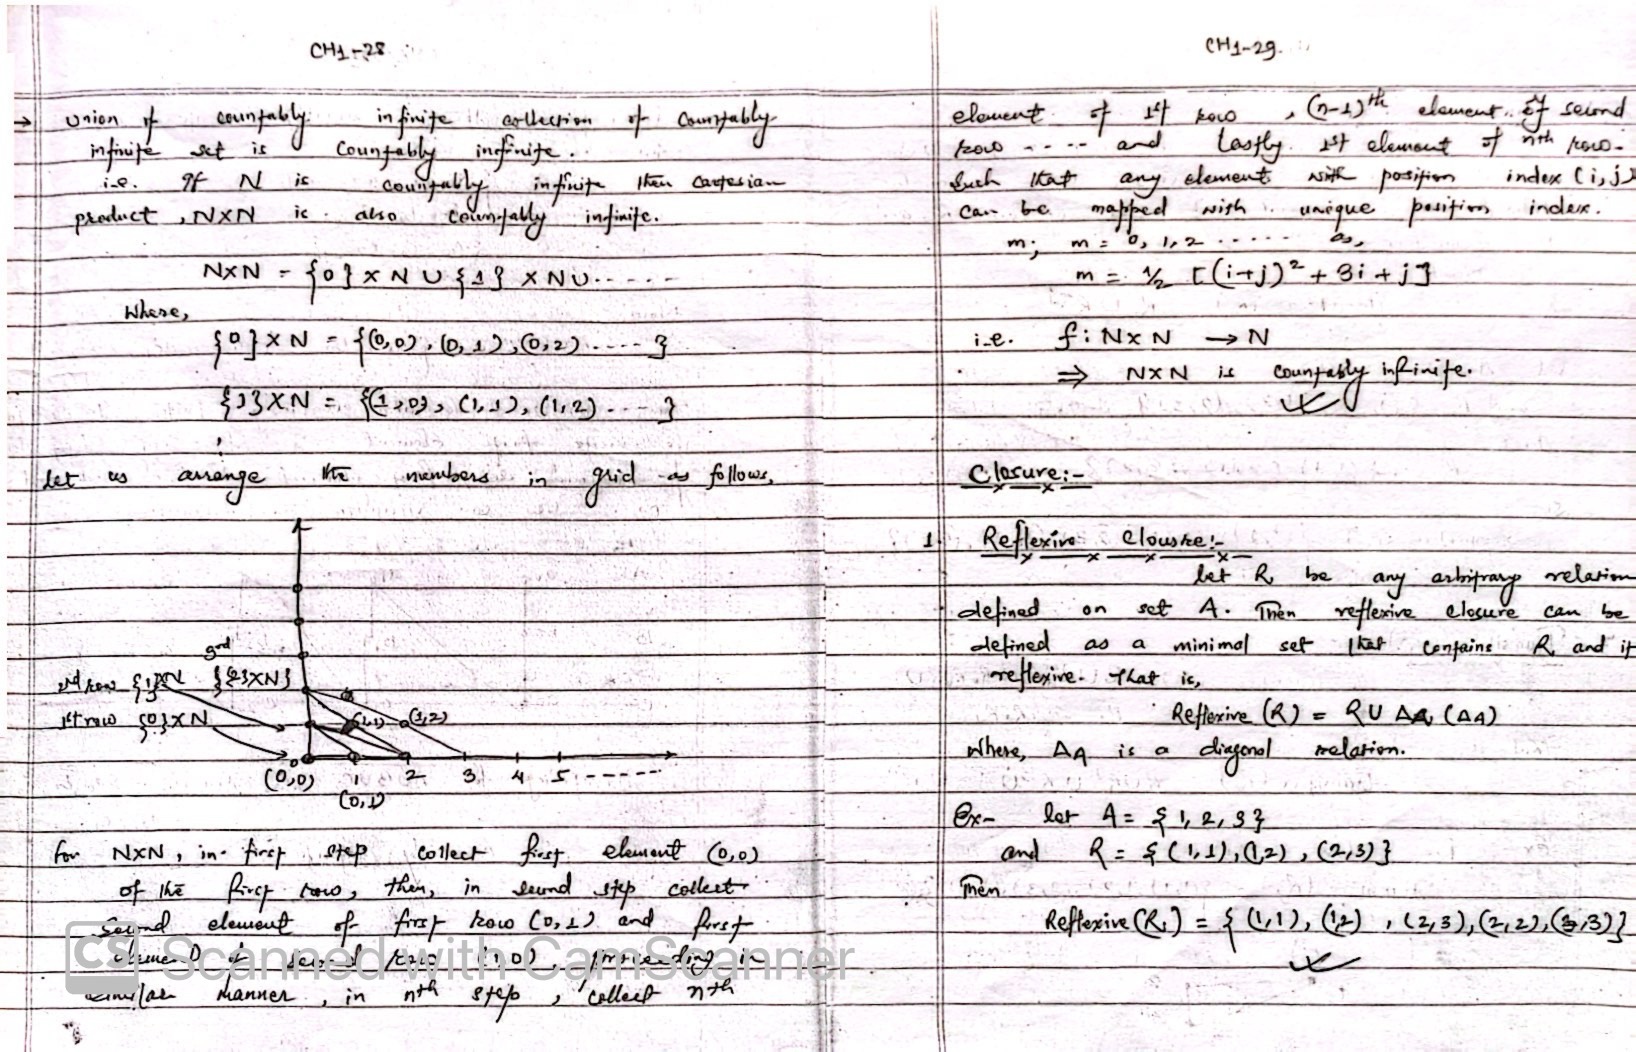 CH1-28
→ Union of countably infinite collection of countably
infinite set is countably infinite.
i.e. If N is countably infinite then cartesian
product, N×N is also countably infinite.
N×N = {0} × N ∪ {1} × N ∪ ......
Where,
{0} × N = {(0,0), (0,1), (0,2) ..... }
{1} × N = {(1,0), (1,1), (1,2) .... }
⋮
Let us arrange the numbers in grid as follows,
3rd
2nd row {1}×N {{2}×N}
1st row {0}×N (1,1) (1,2)
0
(0,0) 1 2 3 4 5 ------
(0,1)
for N×N, in first step collect first element (0,0)
of the first row, then, in second step collect
second element of first row (0,1) and first
element of second row (1,0), proceeding in
similar manner, in nth step, collect nth
CS Scanned with CamScanner
CH1-29.
element of 1st row, (n-1)th element of second
row .... and lastly 1st element of nth row.
Such that any element with position index (i,j)
can be mapped with unique position index.
m; m = 0, 1, 2 ...... as,
m = ½ [(i+j)² + 3i + j]
i.e. f: N×N → N
⇒ N×N is countably infinite.
Closure:-
1. Reflexive Clousre:-
let R be any arbitrary relation
defined on set A. Then reflexive closure can be
defined as a minimal set that contains R and it
reflexive. That is,
Reflexive (R) = R ∪ ΔA (ΔA)
Where, ΔA is a diagonal relation.
Ex- let A = {1, 2, 3}
and R = {(1,1), (1,2), (2,3)}
Then
Reflexive (R) = {(1,1), (1,2), (2,3), (2,2), (3,3)}